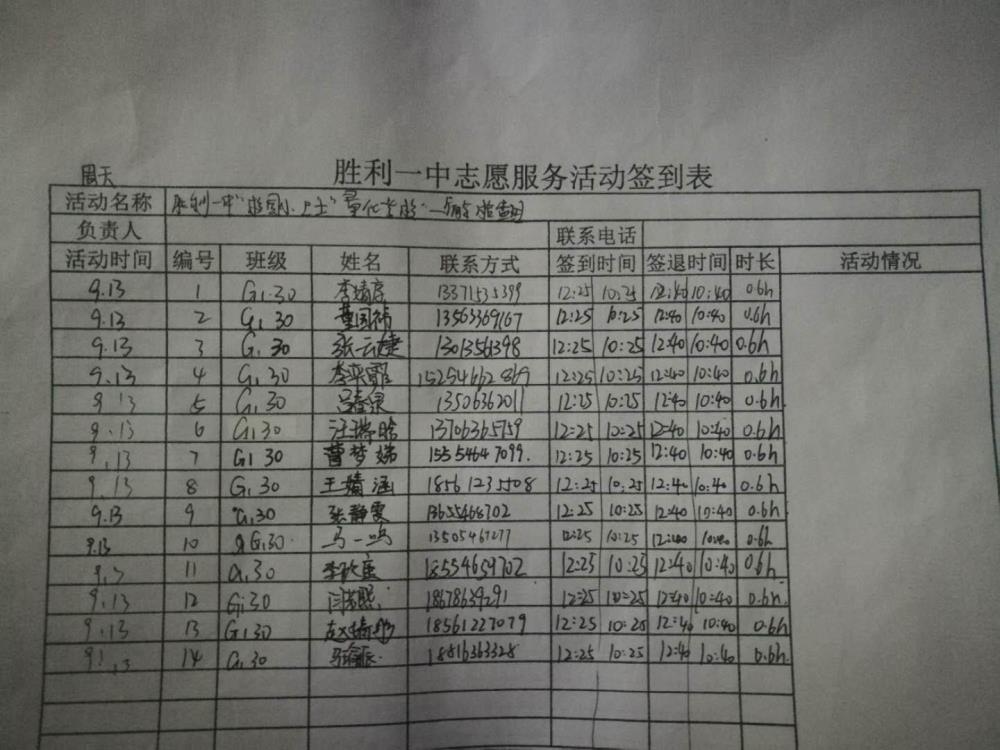 周天
胜利一中志愿服务活动签到表
活动名称 胜利一中"校园小卫士"量化
负责人 联系电话
活动时间 编号 班级 姓名 联系方式 签到时间 签退时间 时长 活动情况
9.13 1 G1.30 12:25 10:25 12:40 10:40 0.6h
9.13 2 G1 30 董国祎 13563369167 12:25 10:25 12:40 10:40 0.6h
9.13 3 G1 30 张云婕 12:25 10:25 12:40 10:40 0.6h
9.13 4 G1 30 15254662869 12:25 10:25 12:40 10:40 0.6h
9.13 5 G1.30 12:25 10:25 12:40 10:40 0.6h
9.13 6 G1.30 汪 晗 13706365759 12:25 10:25 12:40 10:40 0.6h
9.13 7 G1 30 曹梦娣 15554647099. 12:25 10:25 12:40 10:40 0.6h
9.13 8 G1.30 王婧涵 18561235508 12:25 10:25 12:40 10:40 0.6h
9.13 9 G1.30 张静雯 13655468702 12:25 10:25 12:40 10:40 0.6h
9.13 10 G1.30 马一鸣 12:25 10:25 12:40 10:40 0.6h
11 G1.30 18554659702 12:25 10:25 12:40 10:40 0.6h
9.13 12 G1 30 闫 熙 18678639291 12:25 10:25 12:40 10:40 0.6h
9.13 13 G1 30 赵 18561227079 12:25 10:25 12:40 10:40 0.6h
14 G1.30 12:25 10:25 12:40 10:40 0.6h